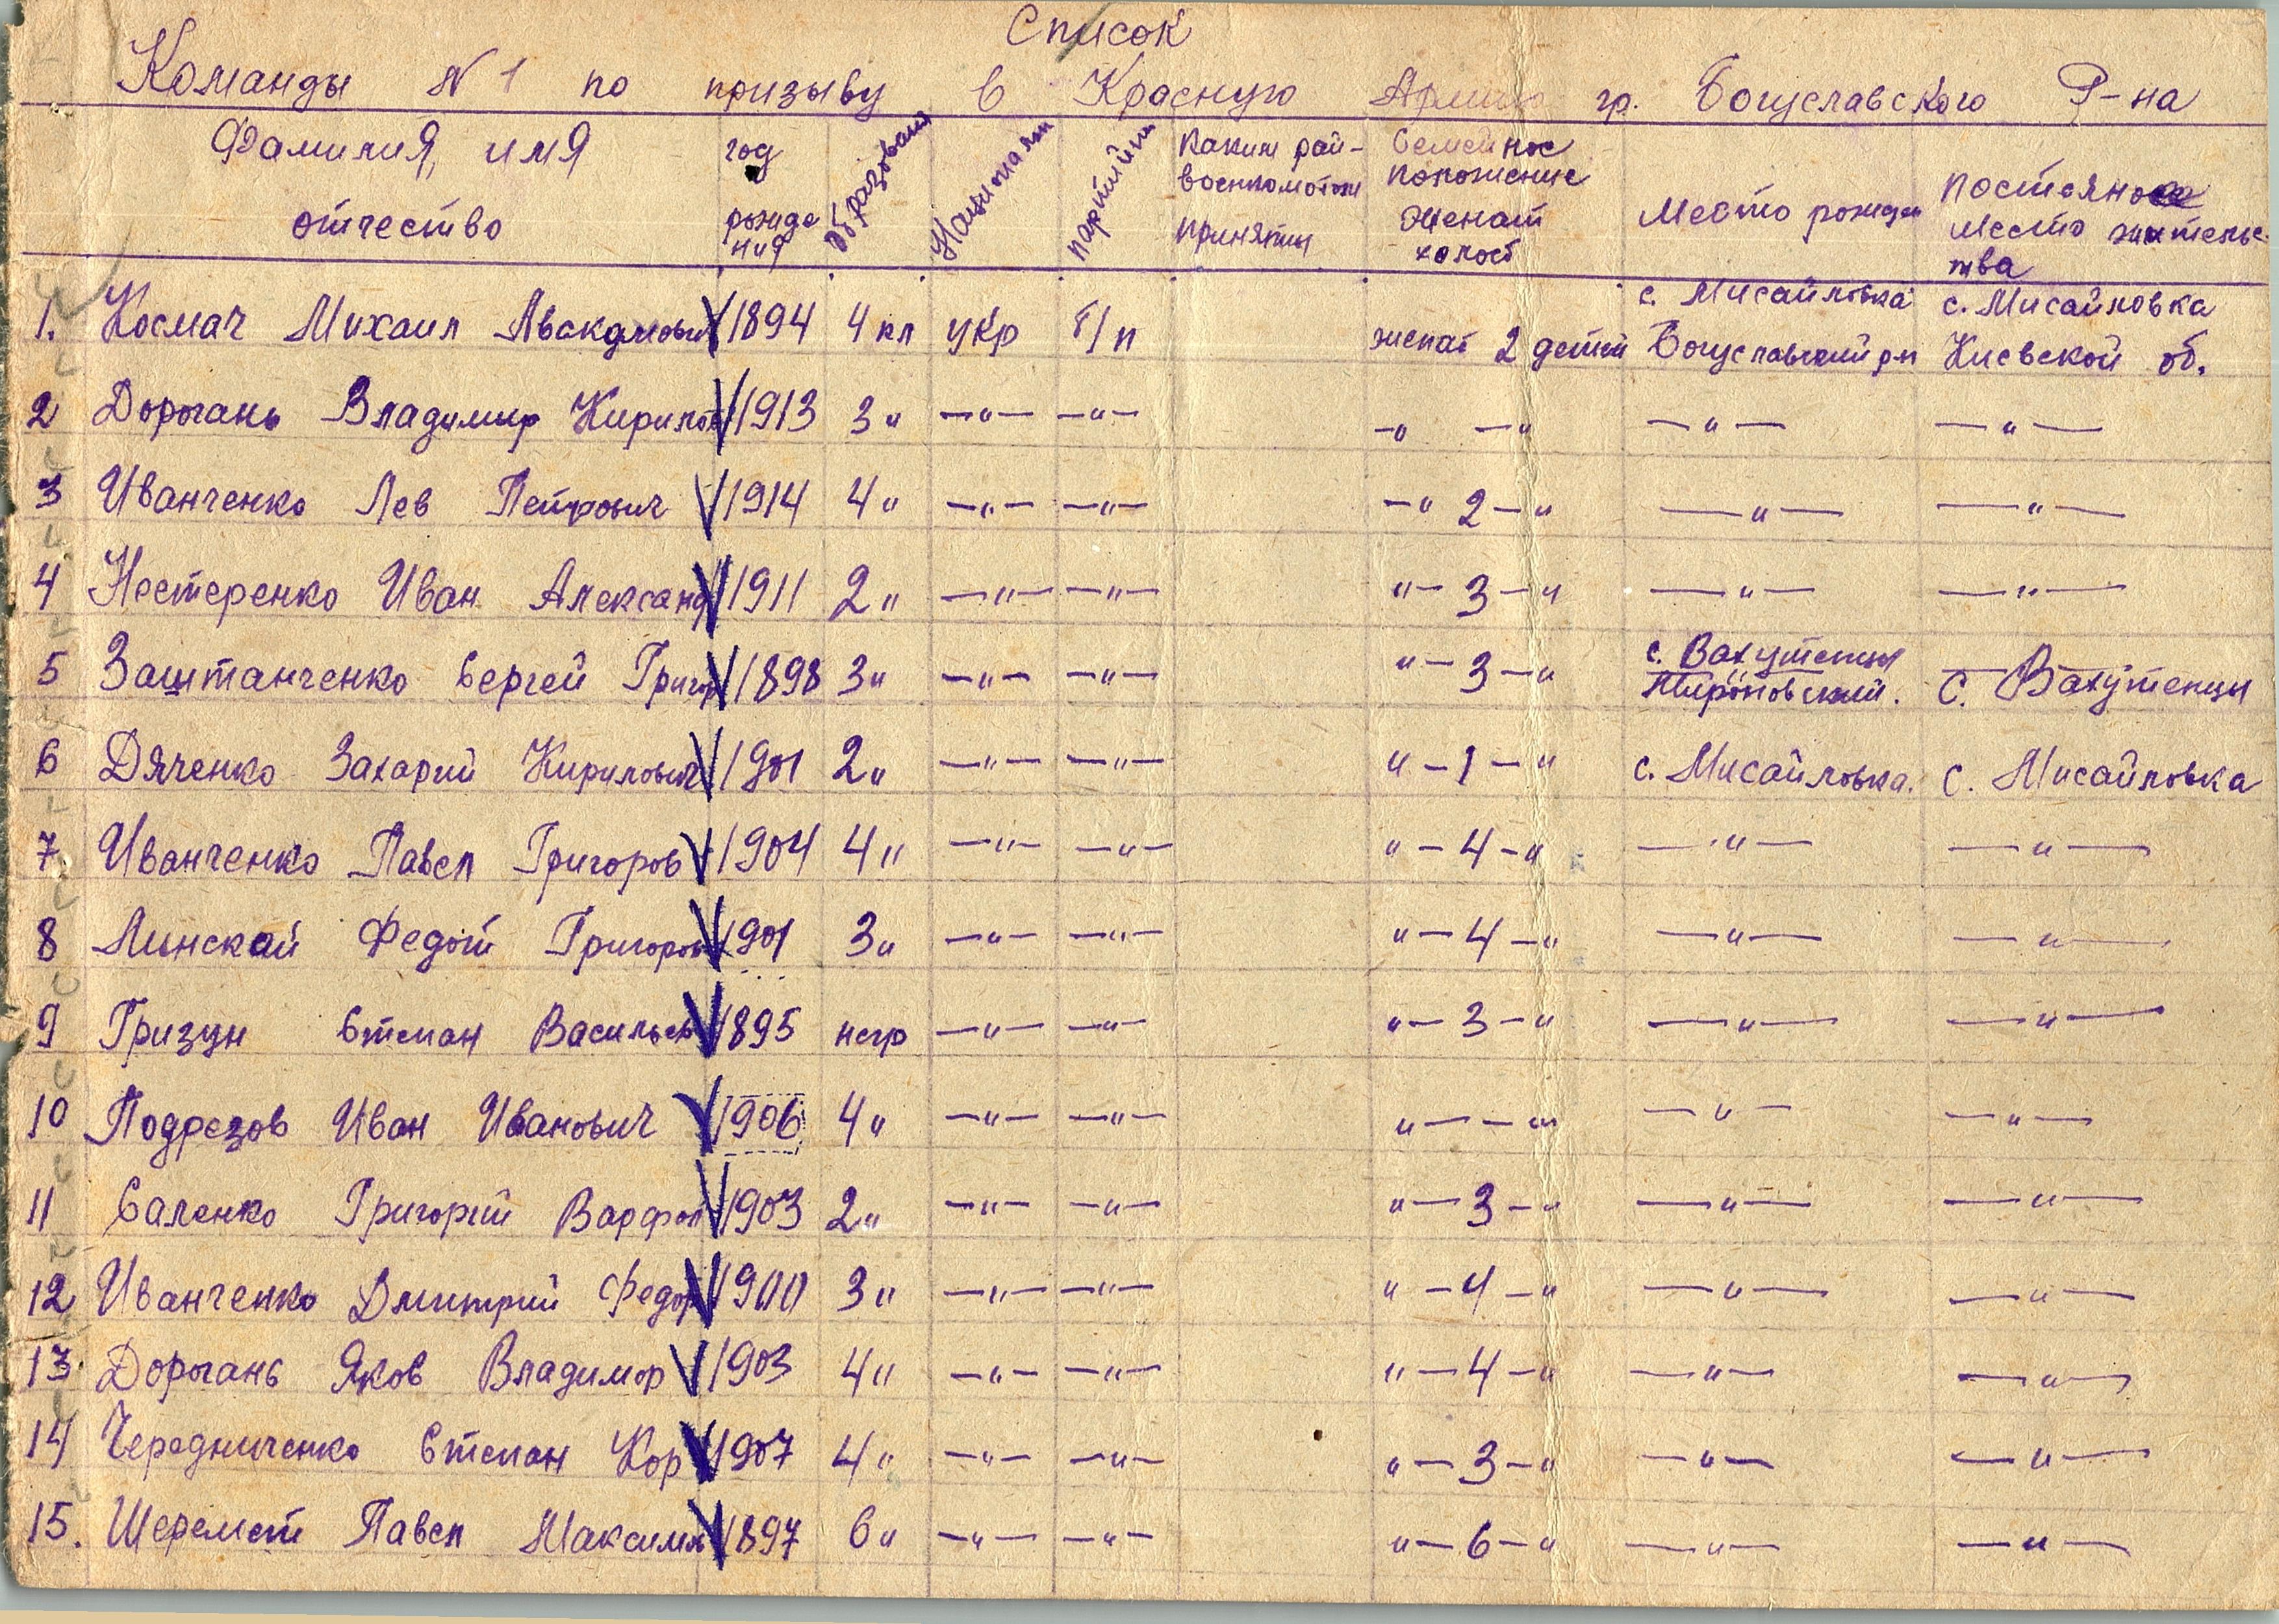 Список
Команды N 1 по призыву в Красную Армию гр. Богуславского Р-на
Фамилия, имя отчество
год рождения
образован
Национальн
партийн
каким рай-
военкоматом
приняты
Семейное
положение
женат
холост
Место рожден
постояное
место жительс-
тва
1. Космач Михаил Авакумович V 1894 4 кл укр б/п женат 2 детей с. Мисайловка Богуславский р-н с. Мисайловка Киевской об.
2 Дорогань Владимир Кирилов V 1913 3 " —"— —"— —" —" —"— —"—
3 Иванченко Лев Петрович V 1914 4 " —"— —"— —" 2 —" —"— —"—
4 Нестеренко Иван Александ V 1911 2 " —"— —"— "— 3 —" —"— —"—
5 Заштанченко Сергей Григор V 1898 3 " —"— —"— "— 3 —" с. Вахутенцы Мироновский. с. Вахутенцы
6 Дяченко Захарий Кирилович V 1901 2 " —"— —"— "— 1 —" с. Мисайловка. с. Мисайловка
7. Иванченко Павел Григоров V 1904 4 " —"— —"— "— 4 —" —"— —"—
8 Линский Федот Григоров V 1901 3 " —"— —"— "— 4 —" —"— —"—
9 Гризун Степан Васильев V 1895 негр —"— —"— "— 3 —" —"— —"—
10 Подрезов Иван Иванович V 1906 4 " —"— —"— "— —" —"— —"—
11 Саленко Григорий Варфол V 1903 2 " —"— —"— "— 3 —" —"— —"—
12 Иванченко Дмитрий Федор V 1900 3 " —"— —"— "— 4 —" —"— —"—
13. Дорогань Яков Владимир V 1903 4 " —"— —"— "— 4 —" —"— —"—
14 Чередниченко Степан Кор V 1907 4 " —"— —"— "— 3 —" —"— —"—
15. Шеремет Павел Максим V 1897 6 " —"— —"— "— 6 —" —"— —"—